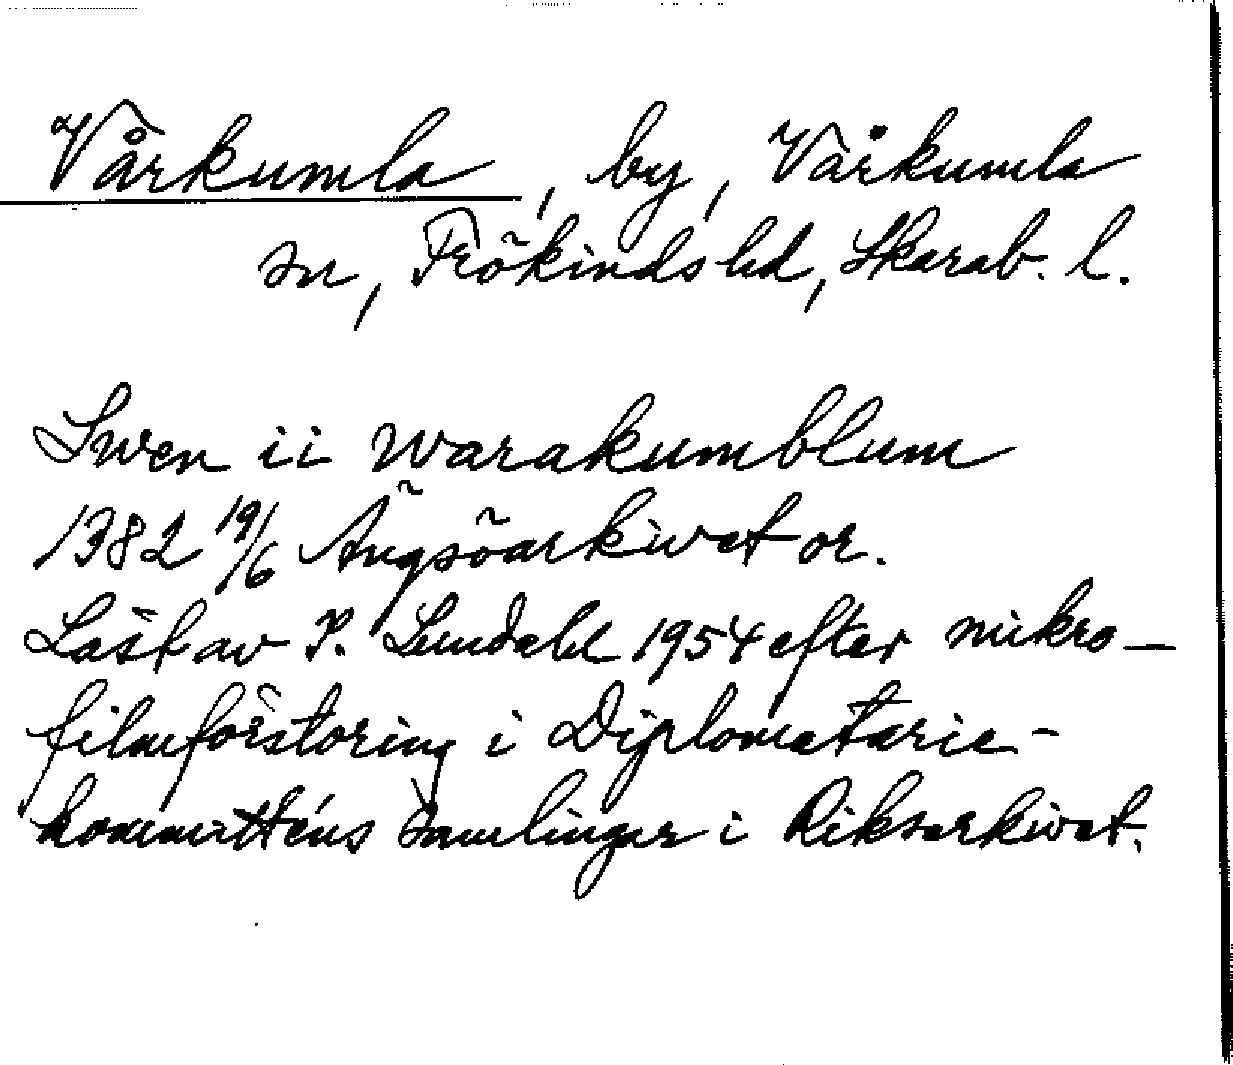 Vårkumla, by, Vårkumla
sn, Frökinds hd, Skarab. l.
Swen ii warakumblum
1382 19/6 Ängsöarkivet or.
Läst av P. Lindahl 1954 efter mikro-
filmförstoring i Diplomatarie-
kommitténs samlingar i Riksarkivet.